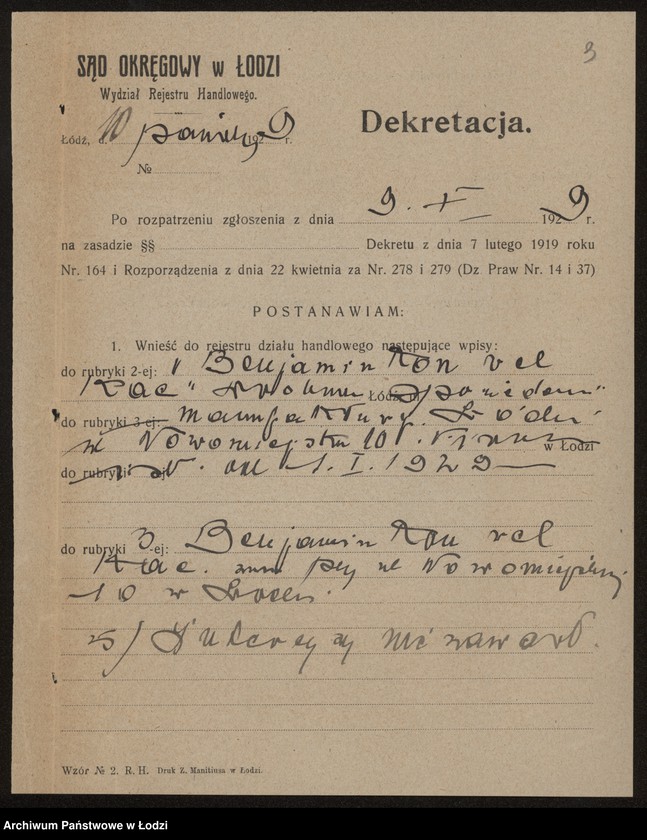 3
SĄD OKRĘGOWY w ŁODZI
Wydział Rejestru Handlowego.
Łódź, d. 10 paźdz 1929 r.
Dekretacja.
№
Po rozpatrzeniu zgłoszenia z dnia 9. X 1929 r.
na zasadzie §§ Dekretu z dnia 7 lutego 1919 roku
Nr. 164 i Rozporządzenia z dnia 22 kwietnia za Nr. 278 i 279 (Dz Praw Nr. 14 i 37)
POSTANAWIAM:
1. Wnieść do rejestru działu handlowego następujące wpisy:
do rubryki 2-ej: "Benjamin Kon vel
Kac" Łódź
do rubryki 3-ej: manufaktury. Łódź,
ul Nowomiejska 10. w Łodzi
do rubryki od 1. I. 1929
do rubryki 3-ej: Benjamin Kon vel
Kac. zam przy ul Nowomiejskiej
10 w Łodzi.
5) nie zawarł.
Wzór № 2. R. H. Druk Z. Manitiusa w Łodzi.
Archiwum Państwowe w Łodzi